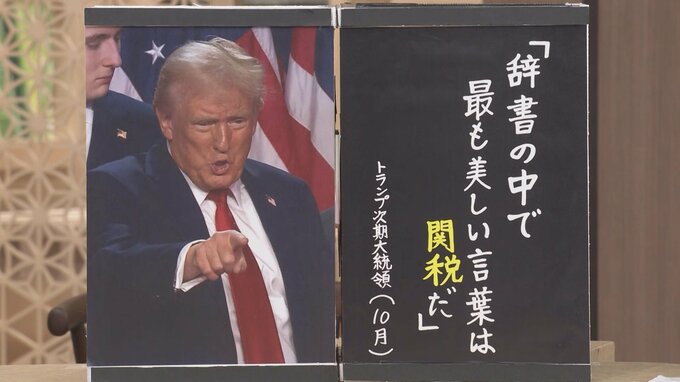 「辞書の中で
最も美しい言葉は
関税だ」
トランプ次期大統領(10月)